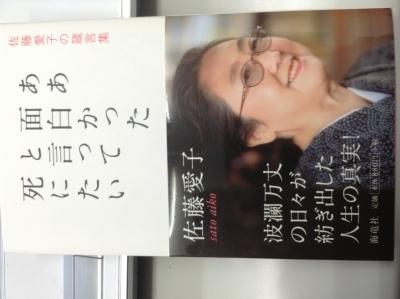 佐藤愛子の箴言集
ああ
面白かった
と言って
死にたい
佐藤愛子
sato aiko
波瀾万丈
の日々が
紡ぎ出した
人生の真実!
海竜社